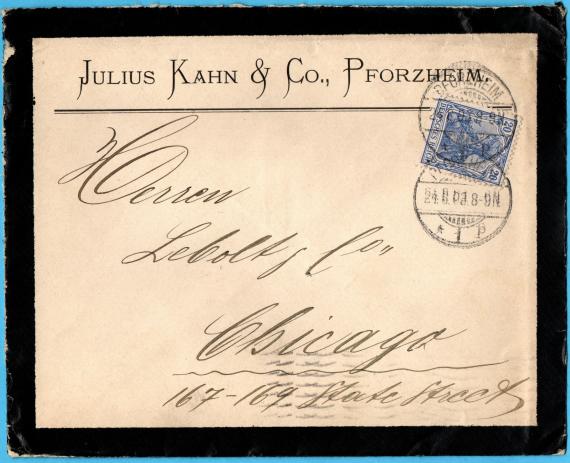 JULIUS KAHN & CO., PFORZHEIM.
PFORZHEIM
20
20
8-9N
1 P
Herren
Lebolt & Co"
Chicago
167-169 State Street